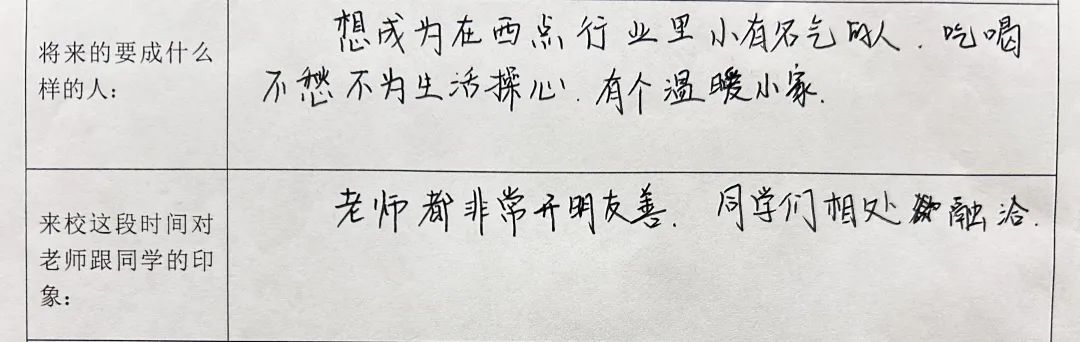 将来的要成什么
样的人：
想成为在西点行业里小有名气的人．吃喝
不愁不为生活操心．有个温暖小家．
来校这段时间对
老师跟同学的印
象：
老师都非常开明友善．同学们相处融洽．